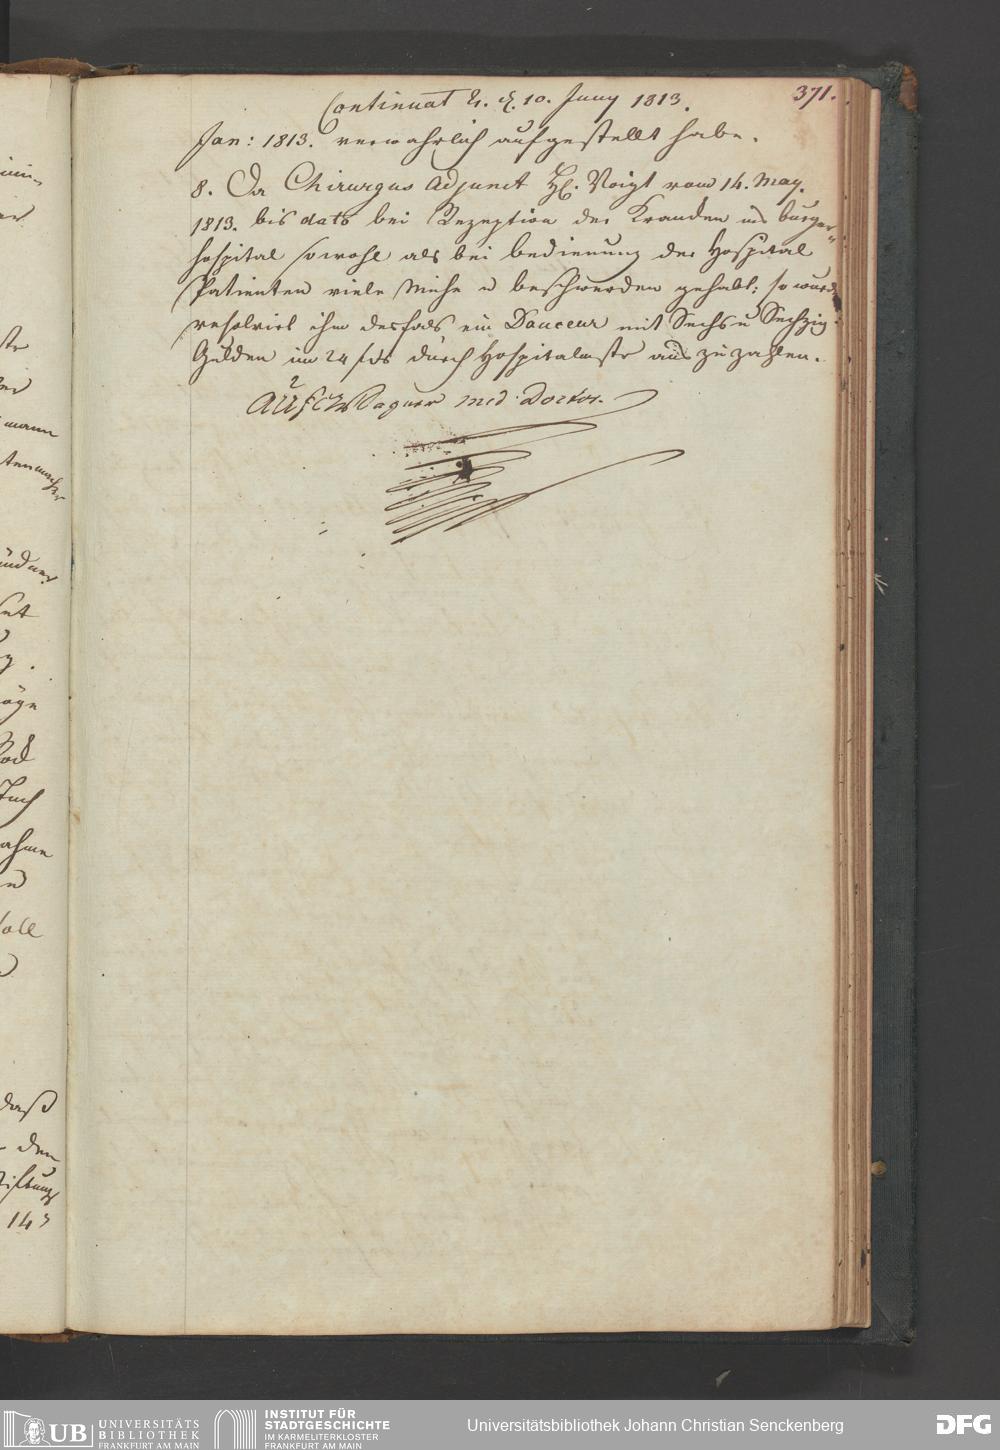 371.
Continuat d. d. 10. Juny 1813.
Jan: 1813. verwahrlich aufgestellt habe.
8. Da Chirurgus Adjunct H. Voigt vom 14. May.
1813. bis dato bei Rezeption der Kranken ins burger-
hospital sowohl als bei bedienung der Hospital
Patienten viele Mühe u beschwerden gehabt; so wurde
resolvirt ihm desfals ein Douceur mit Sechs u Sechzig
Gulden im 24 fl durch Hospitalmstr auszuzahlen.
Wagner med. Doctor.
mann
daß
den
14
UB UNIVERSITÄTS
BIBLIOTHEK
FRANKFURT AM MAIN
INSTITUT FÜR
STADTGESCHICHTE
IM KARMELITERKLOSTER
FRANKFURT AM MAIN
Universitätsbibliothek Johann Christian Senckenberg
DFG